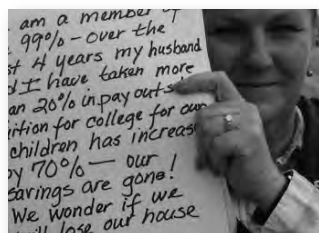 am a member of
99% - over the
4 years my husband
I have taken more
20% in pay outs
for college for our
children has increas
by 70% — our
savings are gone!
We wonder if we
lose our house